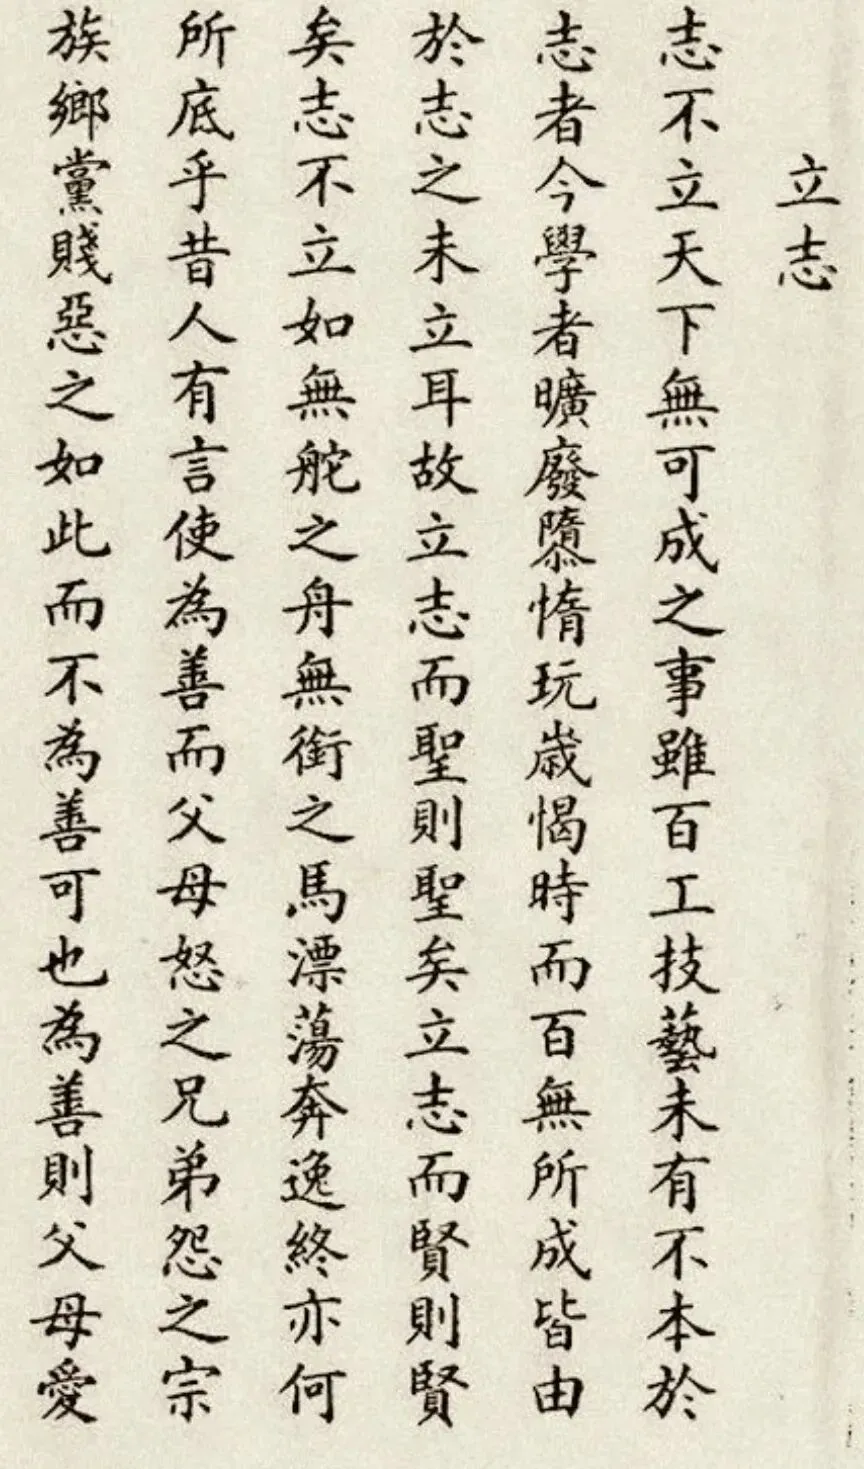 立志
志不立天下無可成之事雖百工技藝未有不本於
志者今學者曠廢隳惰玩歲愒時而百無所成皆由
於志之未立耳故立志而聖則聖矣立志而賢則賢
矣志不立如無舵之舟無銜之馬漂蕩奔逸終亦何
所底乎昔人有言使為善而父母怒之兄弟怨之宗
族鄉黨賤惡之如此而不為善可也為善則父母愛